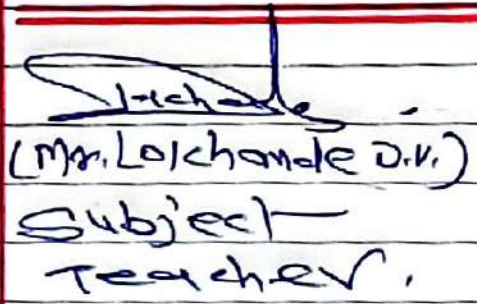 (Mr. Lokhande D.V.)
Subject
Teacher.